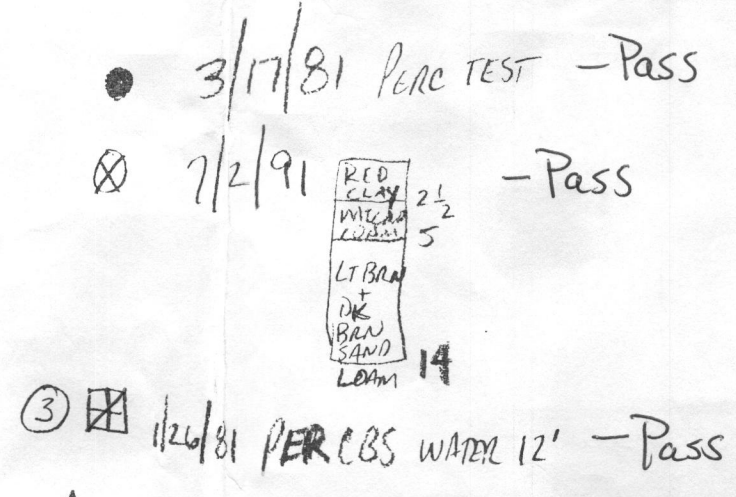 3/17/81 PERC TEST - Pass
7/2/91 - Pass
RED
CLAY 2 1/2
LOAM 5
LT BRN
+
DK
BRN
SAND
LOAM 14
3 1/26/81 PER CBS WATER 12' - Pass